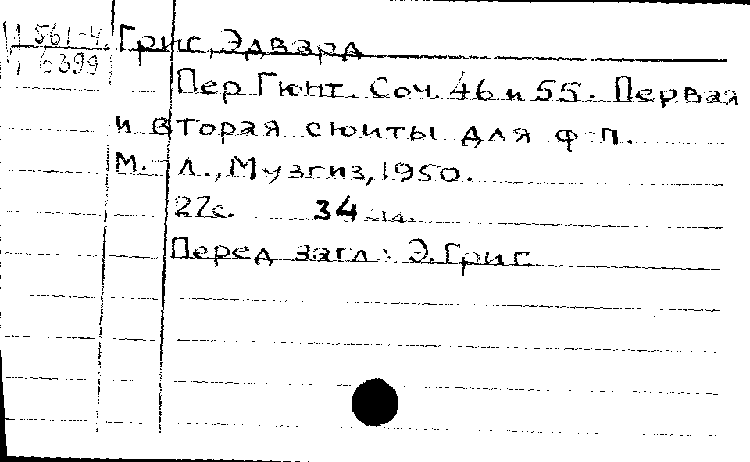 561-4. Григ, Эдвард
6399
Пер Гюнт. Соч. 46 и 55. Первая
и вторая сюиты для ф-п.
М.-Л., Музгиз, 1950.
27с. 34 см.
Перед загл.: Э. Григ